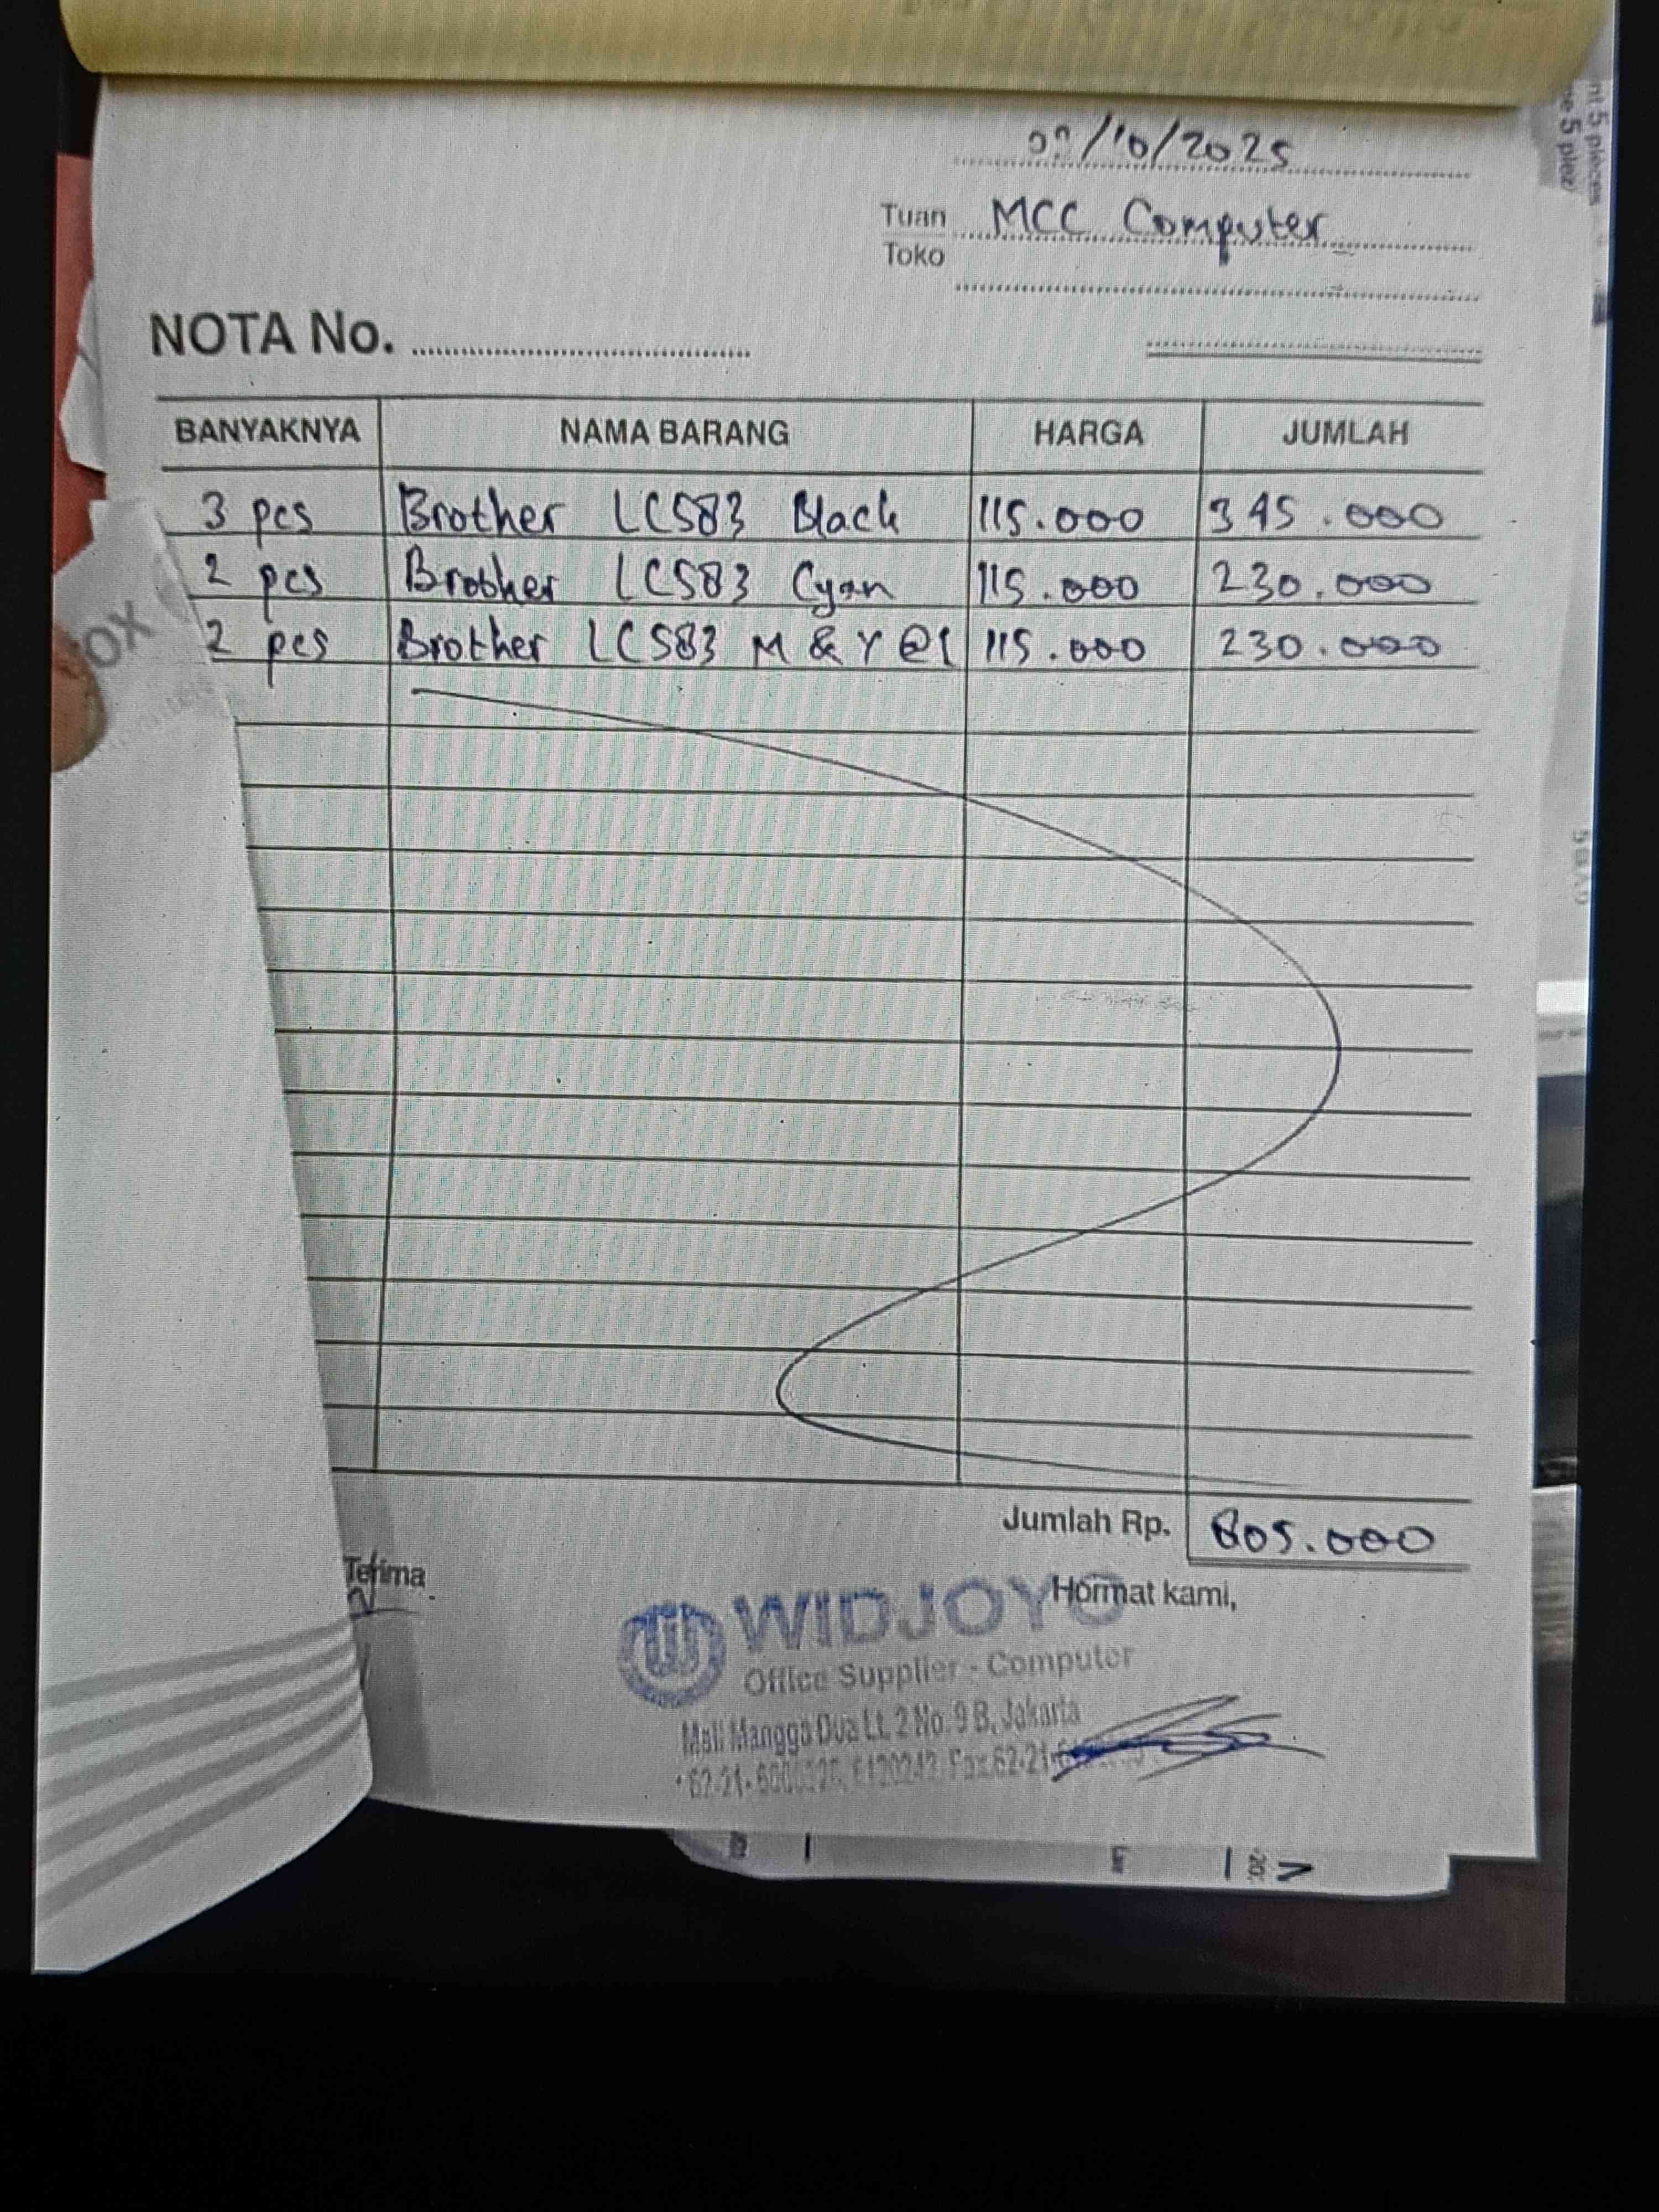 /10/2025
Tuan MCC Computer
Toko
NOTA No.
BANYAKNYA NAMA BARANG HARGA JUMLAH
3 pcs Brother LC583 Black 115.000 345.000
2 pcs Brother LC583 Cyan 115.000 230.000
2 pcs Brother LC583 M & Y @1 115.000 230.000
OX
Jumlah Rp. 805.000
Terima
Hormat kami,
WIDJOYO
Office Supplier - Computer
Mall Mangga Dua Lt. 2 No. 9 B, Jakarta
nt 5 pieces
e 5 piez